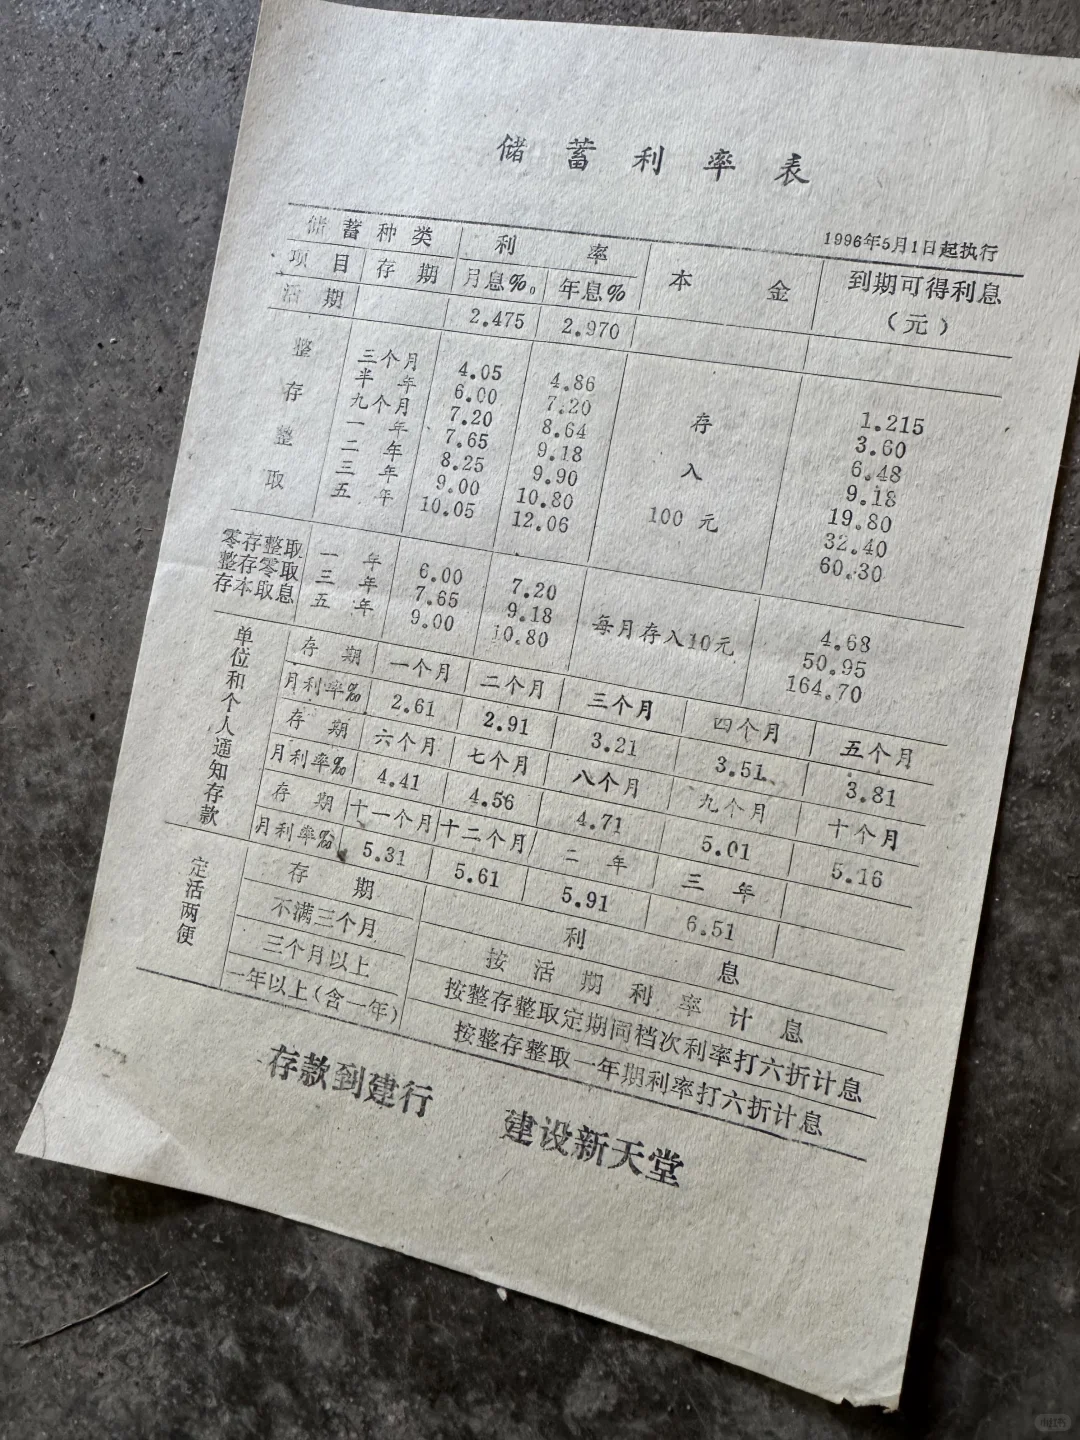 储蓄利率表
1996年5月1日起执行
储蓄种类 利率 本金 到期可得利息（元）
项目 存期 月息‰ 年息%
活期 2.475 2.970
整存整取 存入100元
三个月 4.05 4.86 1.215
半年 6.00 7.20 3.60
九个月 7.20 8.64 6.48
一年 7.65 9.18 9.18
二年 8.25 9.90 19.80
三年 9.00 10.80 32.40
五年 10.05 12.06 60.30
零存整取 一年 6.00 7.20 4.68
整存零取 三年 7.65 9.18 每月存入10元 50.95
存本取息 五年 9.00 10.80 164.70
单位和个人通知存款
存期 一个月 二个月 三个月 四个月 五个月
月利率‰ 2.61 2.91 3.21 3.51 3.81
存期 六个月 七个月 八个月 九个月 十个月
月利率‰ 4.41 4.56 4.71 5.01 5.16
存期 十一个月 十二个月 二年 三年
月利率‰ 5.31 5.61 5.91 6.51
定活两便
存期 利息
不满三个月 按活期利率计息
三个月以上 按整存整取定期同档次利率打六折计息
一年以上（含一年） 按整存整取一年期利率打六折计息
存款到建行 建设新天堂